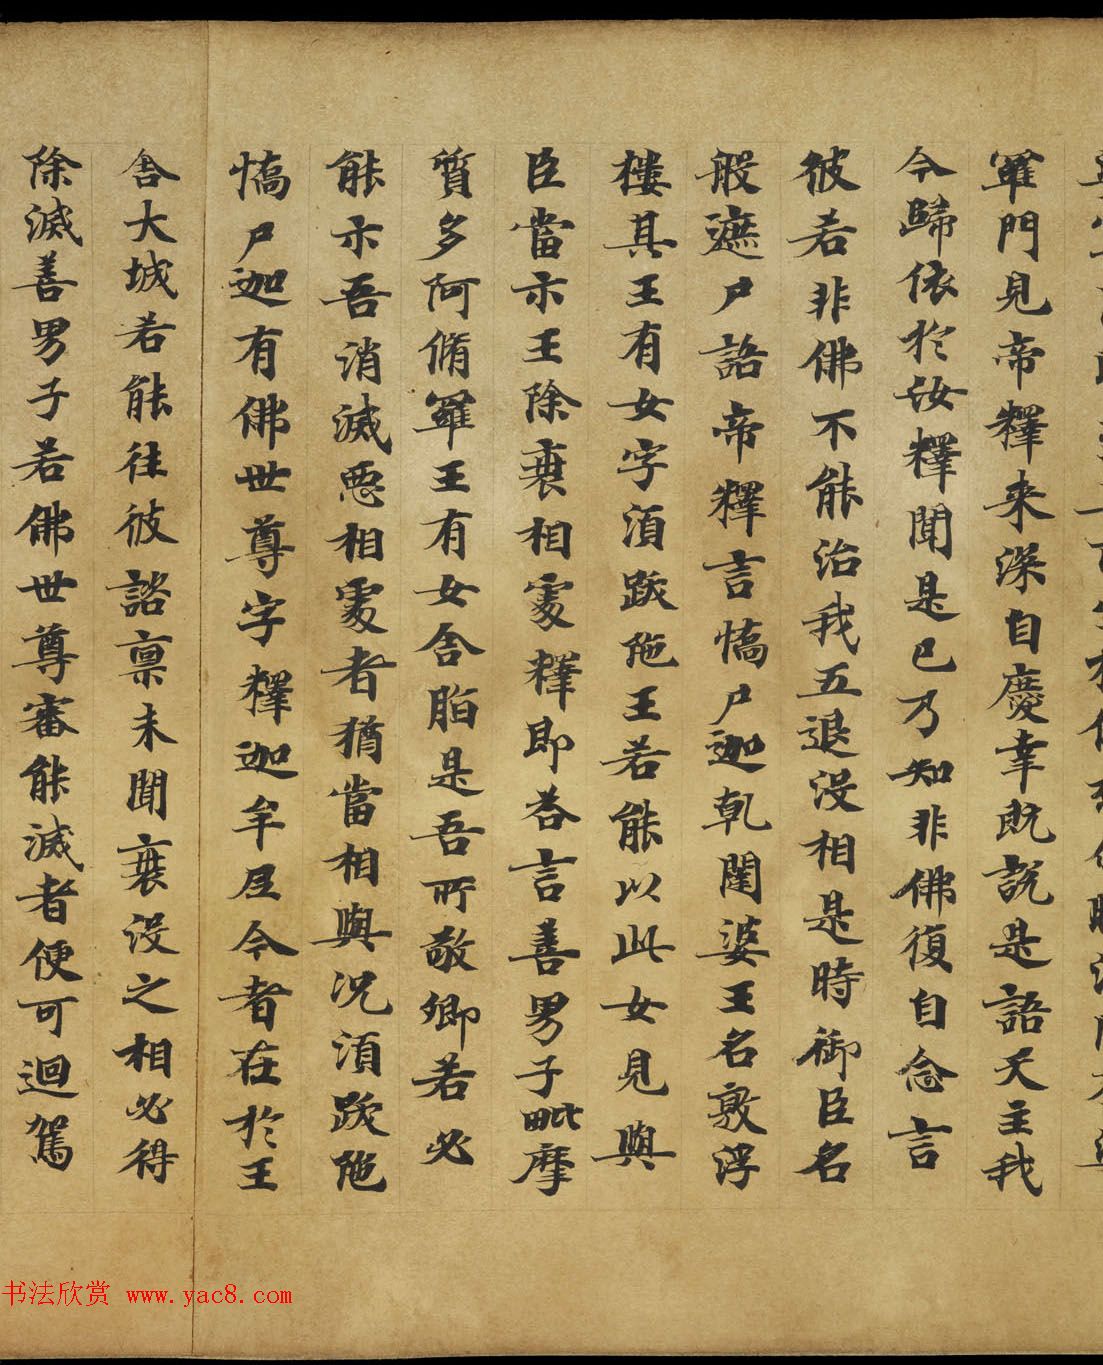 羅門見帝釋来深自慶幸既說是語天主我
今歸依於汝釋聞是已乃知非佛復自念言
彼若非佛不能治我五退没相是時御臣名
般遮尸語帝釋言憍尸迦乹闥婆王名敦浮
樓其王有女字湏跋陁王若能以此女見與
臣當示王除衰相處釋即荅言善男子毗摩
質多阿脩羅王有女舍脂是吾所敬卿若必
能示吾消滅惡相處者猶當相與况湏跋陁
憍尸迦有佛世尊字釋迦牟尼今者在於王
舎大城若能往彼諮禀未聞衰没之相必得
除滅善男子若佛世尊審能滅者便可迴駕
书法欣赏 www.yac8.com